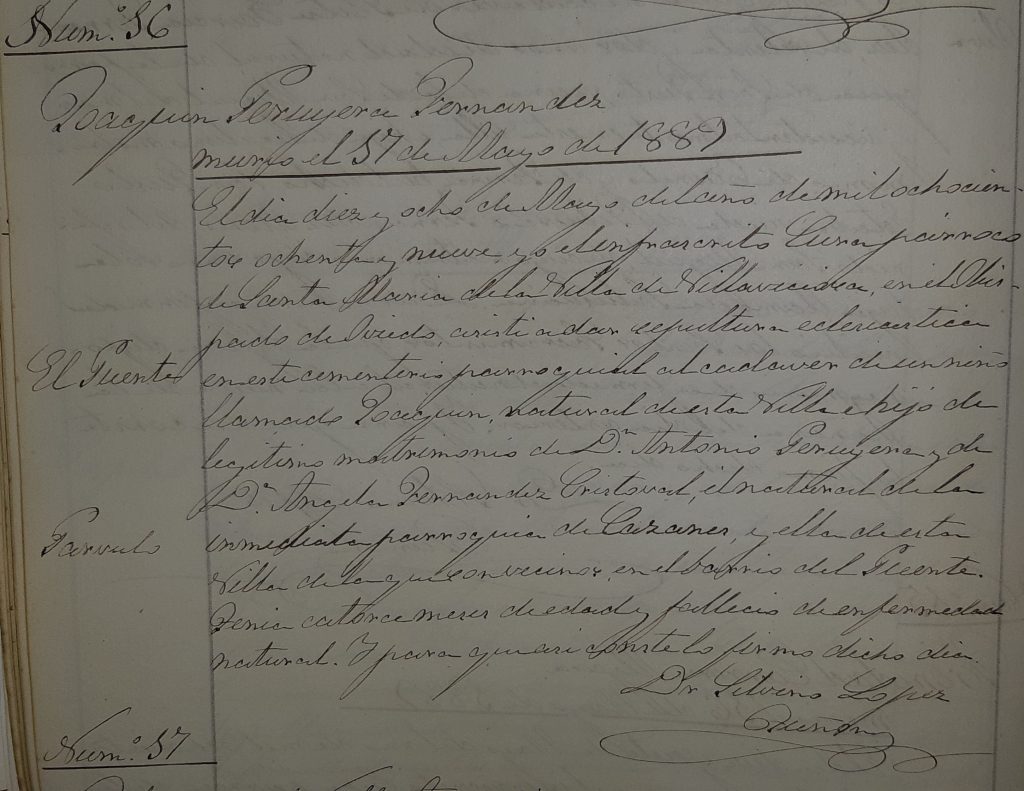 Num.º 56
Joaquin Peruyera Fernandez
murió el 17 de Mayo de 1889
El dia diez y ocho de Mayo del año de mil ochocien-
tos ochenta y nueve, yo el infrascrito Cura párroco
de Santa Maria de la Villa de Villaviciosa, en el Obis-
pado de Oviedo, asisti a dar sepultura eclesiastica
El Puente
en este cementerio parroquial al cadaver de un niño
llamado Joaquin, natural de esta Villa e hijo de
legitimo matrimonio de D.n Antonio Peruyera y de
D.ª Angela Fernandez Cristoval, él natural de la
Parvulo
inmediata parroquia de Cazanes, y ella de esta
Villa de la que son vecinos, en el barrio del Puente.
Tenia catorce meses de edad y fallecio de enfermedad
natural. Y para que asi conste lo firmo dicho dia.
Dr Silvino Lopez
Num.º 57